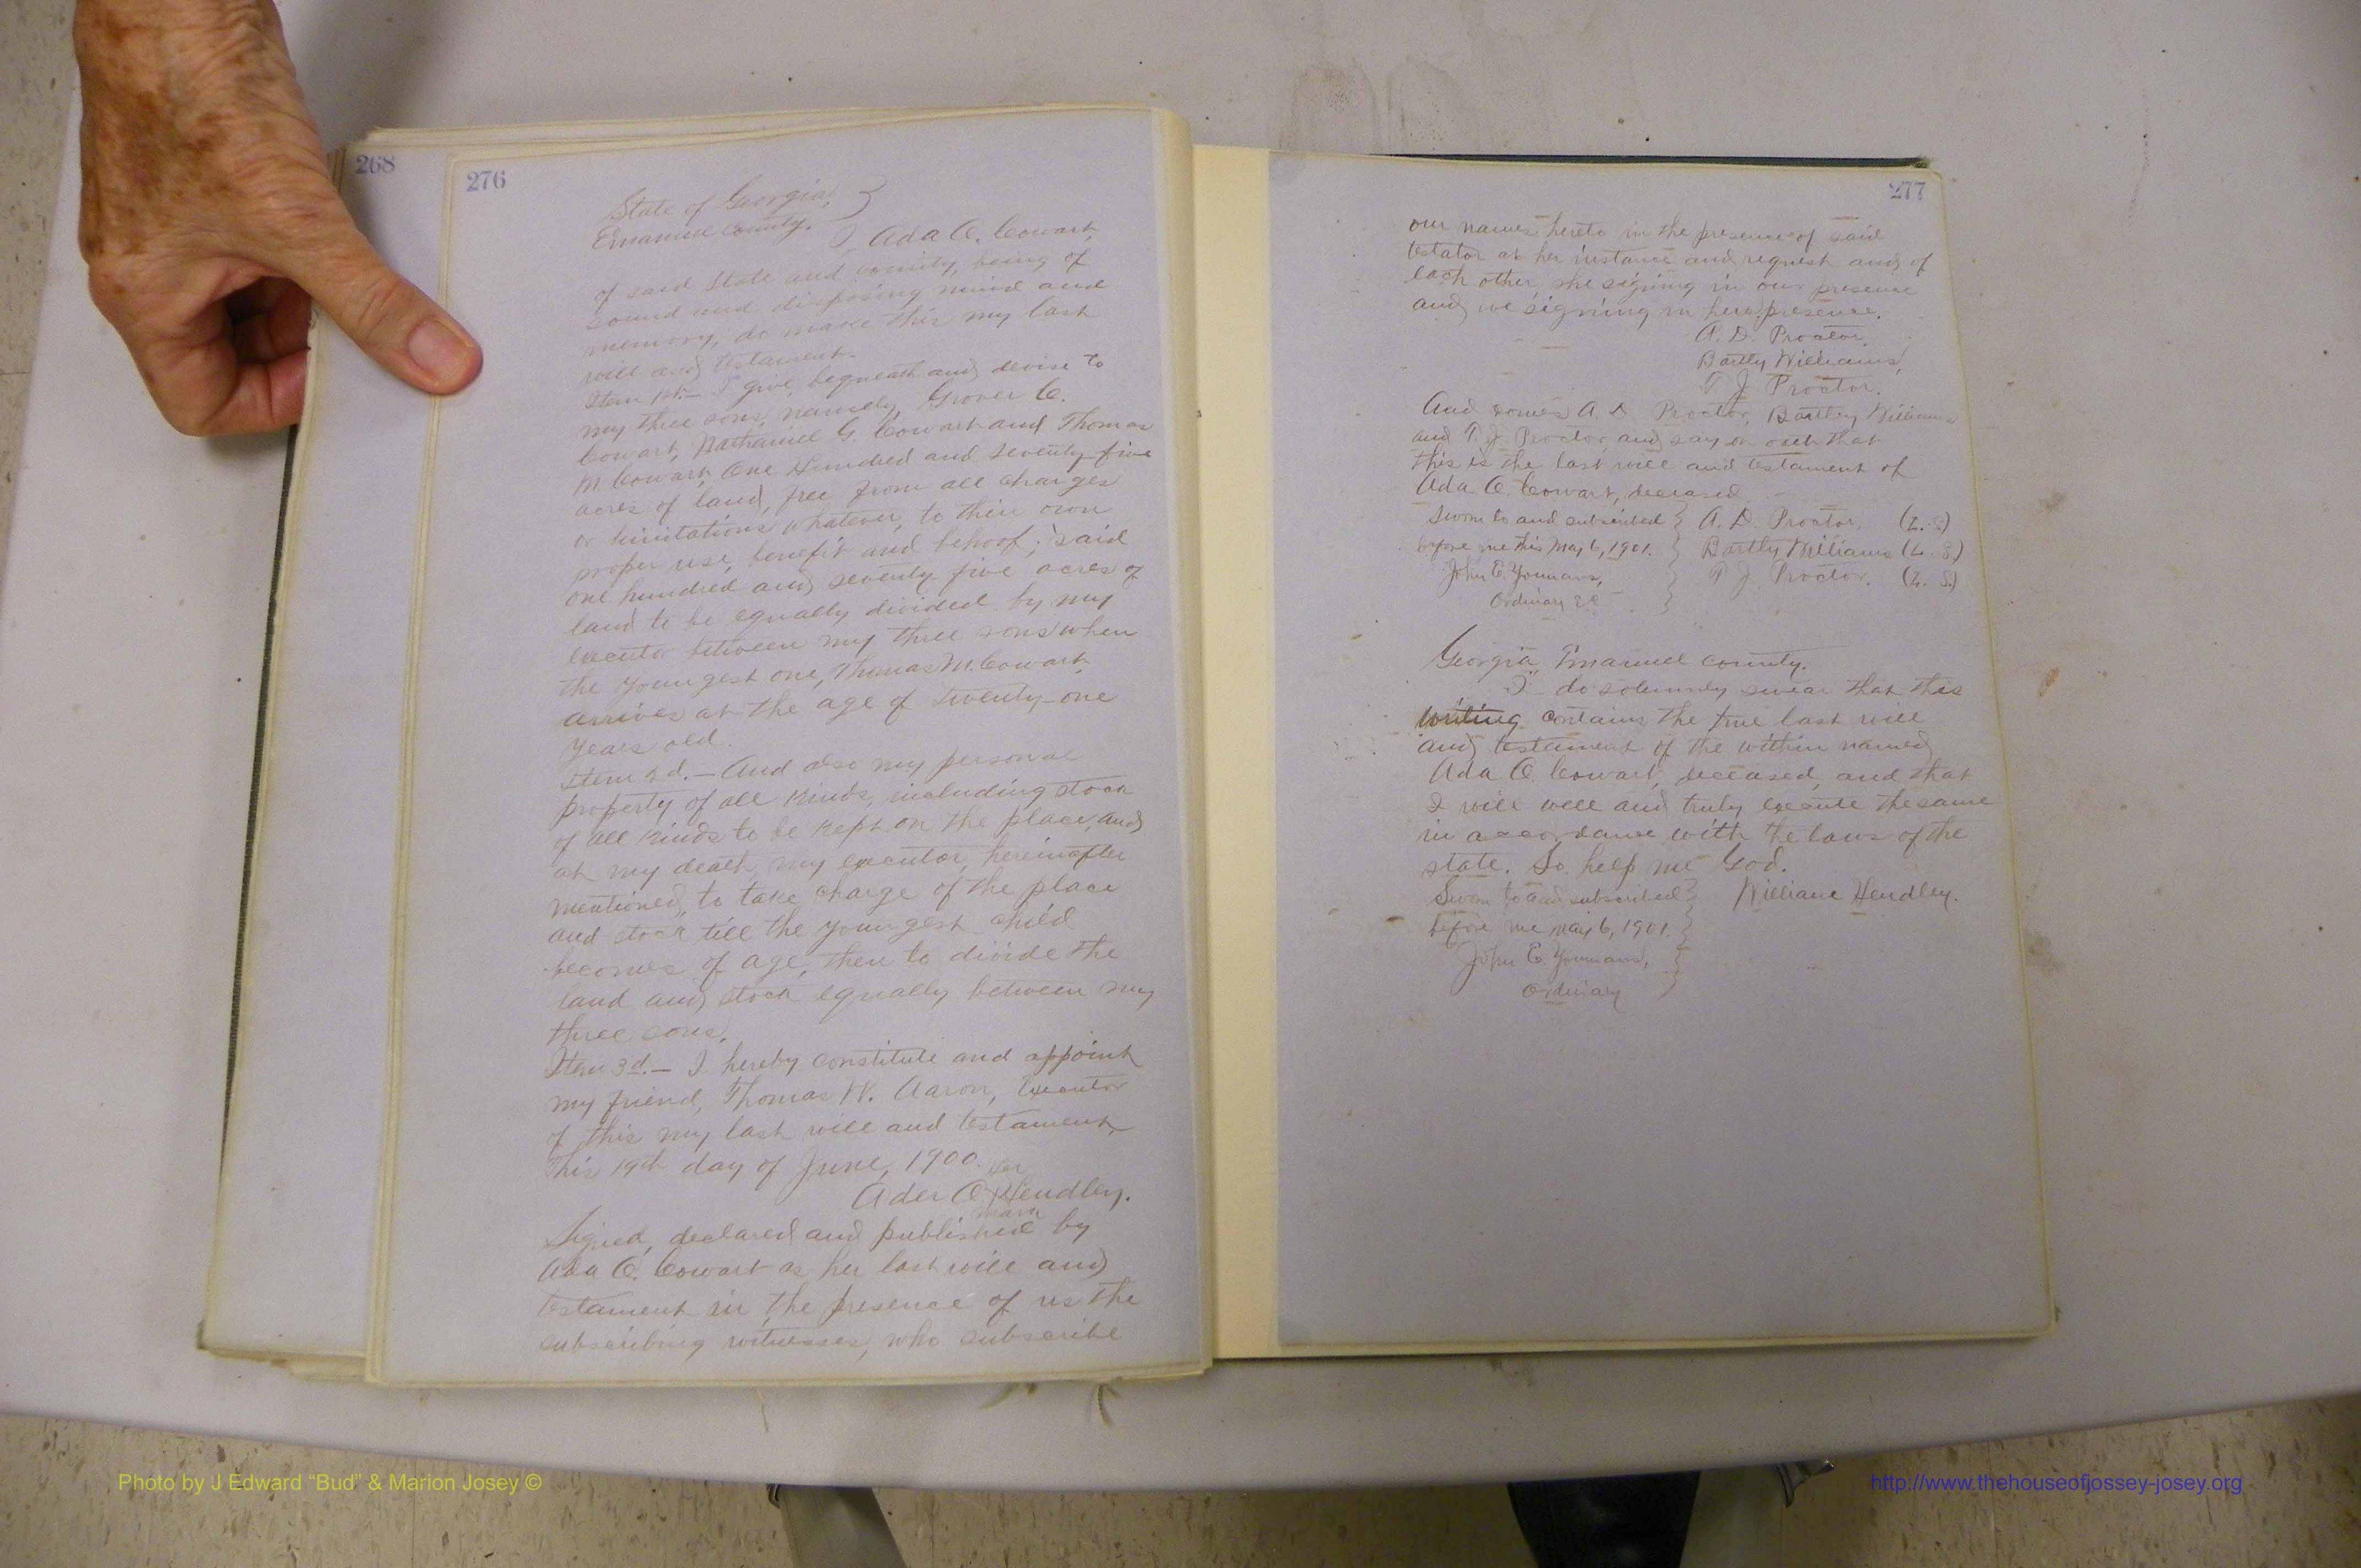 268
276
State of Georgia, }
Emanuel County. } I, Ada O. Cowart,
of said State and county, being of
sound and disposing mind and
memory, do make this my last
will and testament.
Item 1st.— I give, bequeath and devise to
my three sons, namely, Grover C.
Cowart, Nathaniel G. Cowart and Thomas
M. Cowart, One Hundred and seventy-five
acres of land, free from all charges
or limitations whatever, to their own
proper use, benefit and behoof; said
one hundred and seventy five acres of
land to be equally divided by my
executor between my three sons when
the youngest one, Thomas M. Cowart,
arrives at the age of twenty-one
years old.
Item 2d.— And also my personal
property of all kinds, including stock
of all kinds to be kept on the place, and
at my death, my executor, hereinafter
mentioned, to take charge of the place
and stock till the youngest child
becomes of age, then to divide the
land and stock equally between my
three sons.
Item 3d.— I hereby constitute and appoint
my friend, Thomas W. Aaron, Executor
of this my last will and testament,
This 19th day of June, 1900.
her
Ader O x Hendley.
mark
Signed, declared and published by
Ada O. Cowart as her last will and
testament in the presence of us the
subscribing witnesses, who subscribe
277
our names hereto in the presence of said
testator at her instance and request and of
each other, she signing in our presence
and we signing in her presence.
A. D. Proctor,
Bartly Williams,
T. J. Proctor.
And comes A. D. Proctor, Bartley Williams
and T. J. Proctor and say on oath that
this is the last will and testament of
Ada O. Cowart, deceased.
Sworn to and subscribed } A. D. Proctor. (L. S.)
before me this May 6, 1901. } Bartly Williams (L. S.)
John E. Youmans, } T. J. Proctor. (L. S.)
Ordinary E.C. }
Georgia, Emanuel County.
I do solemnly swear that this
writing contains the true last will
and testament of the within named
Ada O. Cowart, deceased, and that
I will well and truly execute the same
in accordance with the laws of the
state. So help me God.
Sworn to and subscribed } William Hendley.
before me May 6, 1901. }
John E. Youmans, }
Ordinary }
Photo by J Edward “Bud” & Marion Josey ©
http://www.thehouseofjossey-josey.org